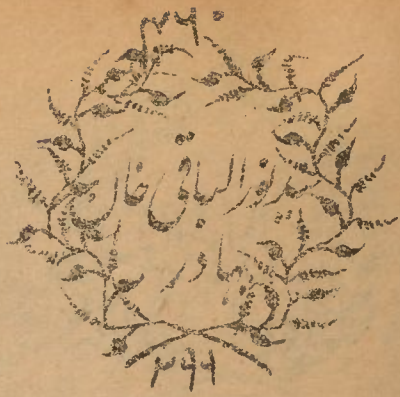 ٣٦٠
سید نور الباقی خان
بهادر
٣٩٩